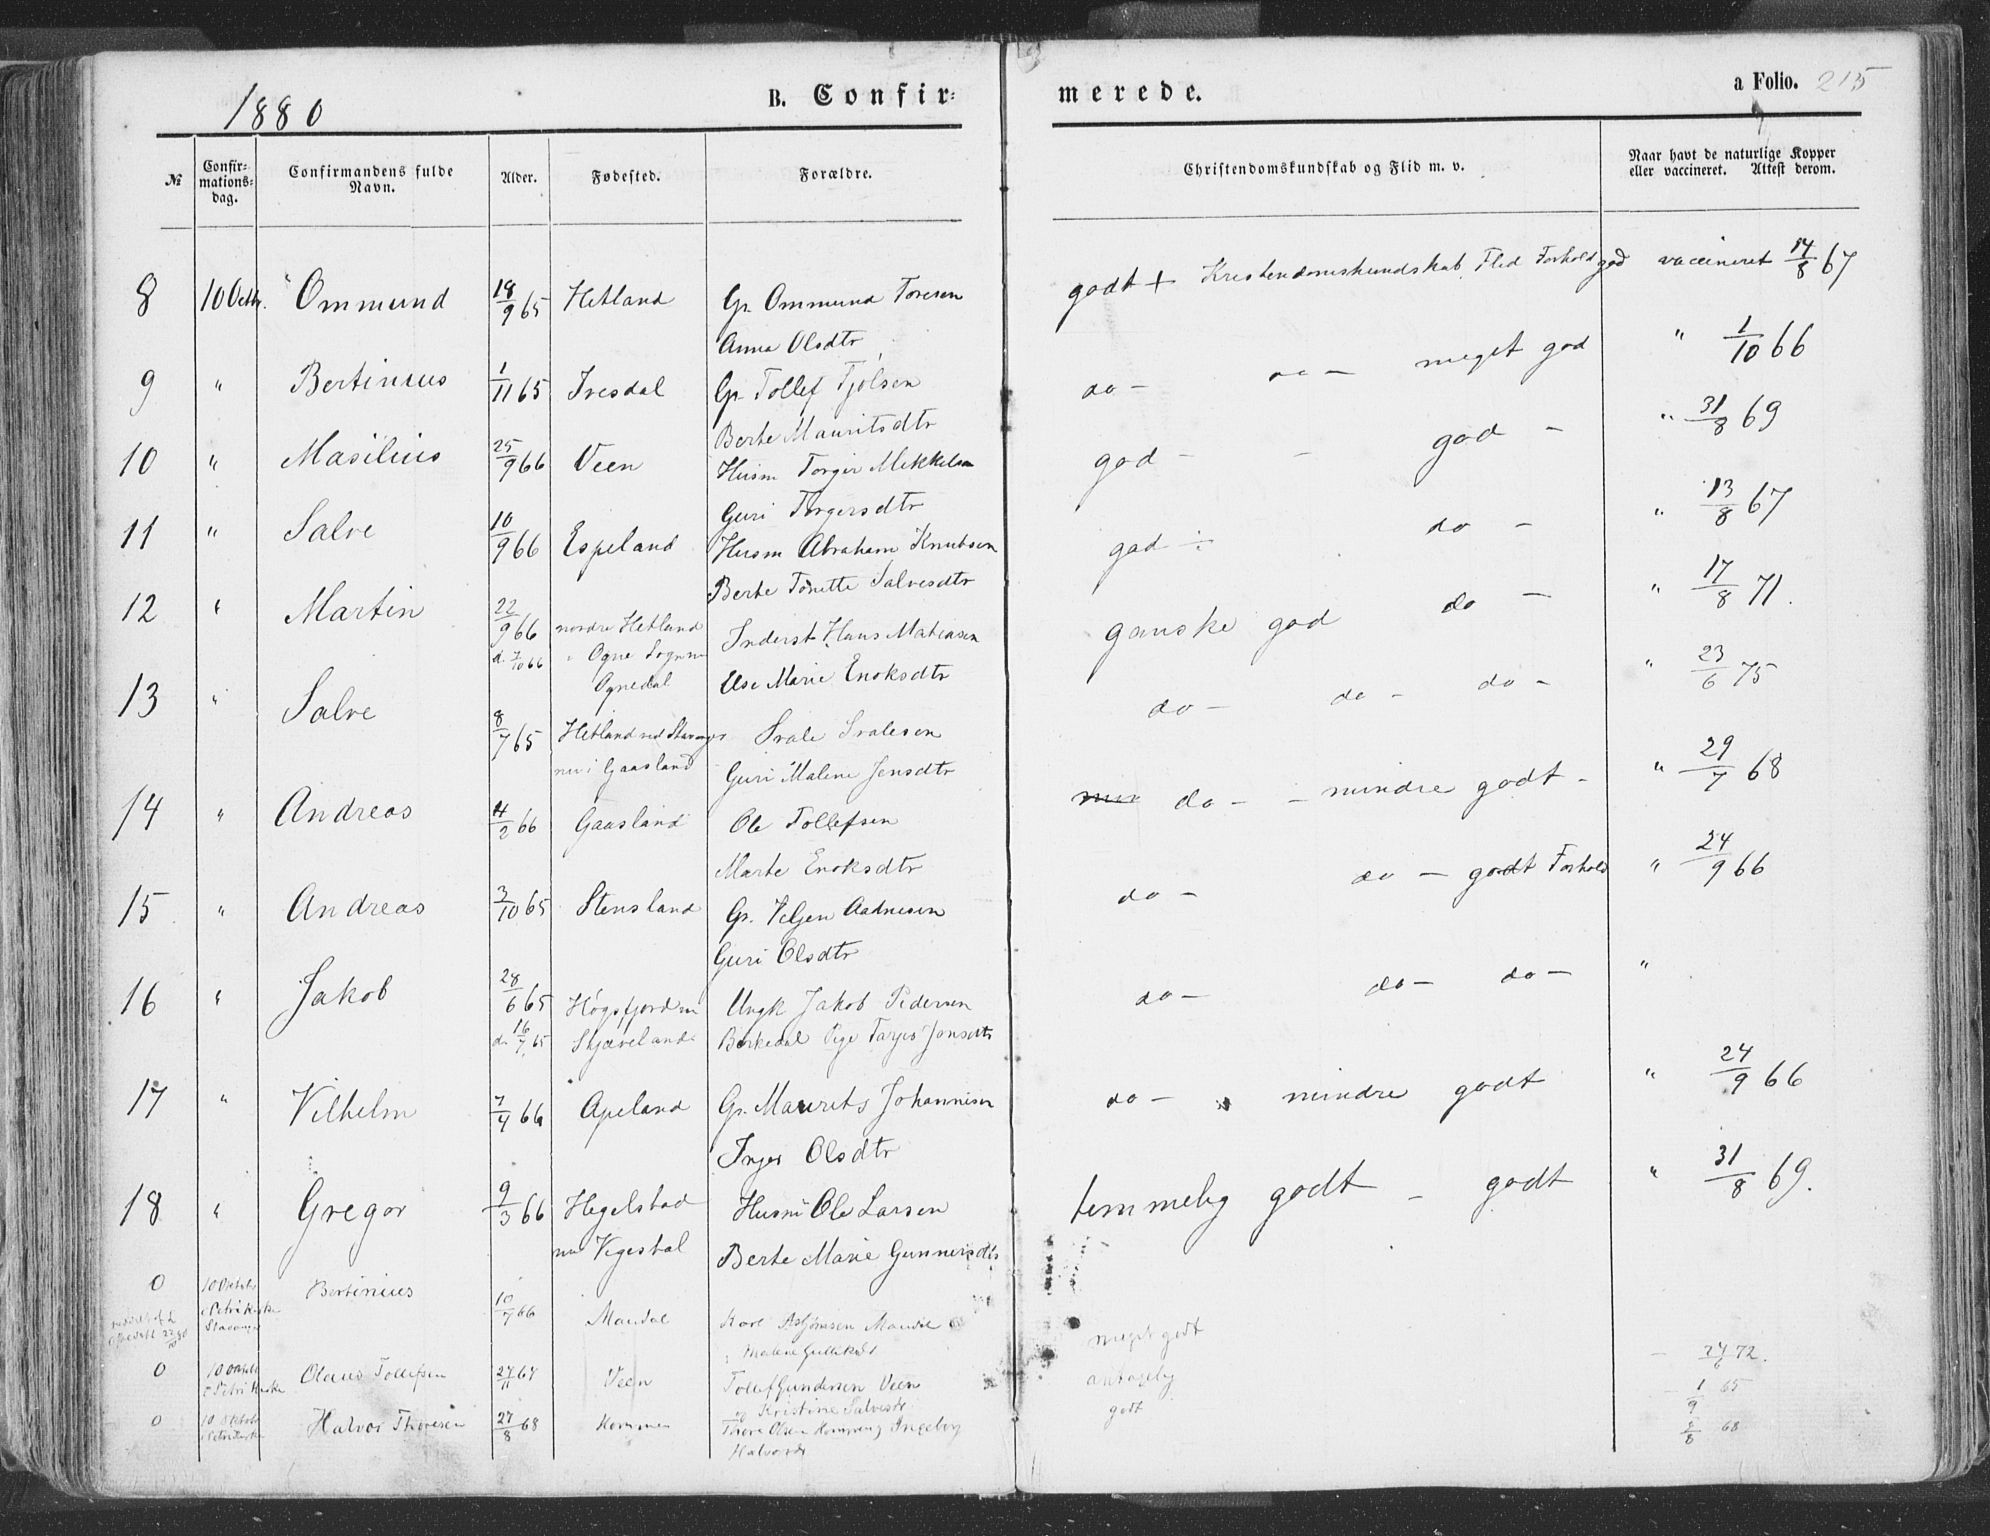 1880
B. Confir-
merede.
a Folio. 215
№
Confir-
mations-
dag.
Confirmandens fulde
Navn.
Alder.
Fødested.
Forældre.
Christendomskundskab og Flid m. v.
Naar havt de naturlige Kopper
eller vaccineret. Attest derom.
8 10 Octbr. Ommund 18/9 65 Hetland Gr. Ommund Toresen godt + Kristendomskundskab, Flid Forhold god vaccineret 14/8 67
Anna Olsdtr
9 " Bertinius 1/11 65 Ivesdal Gr. Tollef Tjølsen do - do - meget god " 1/10 66
Berte Mauritsdtr
10 " Masilius 25/9 66 Veen Husm Torger Mikkelsen god - - god - " 31/8 69
Guri Torgersdtr
11 " Salve 10/9 66 Espeland Husm Abraham Knudsen god ÷ do - " 13/8 67
Berte Tonette Salvesdtr
12 " Martin 22/9 66 nordre Hetland Inderst Hans Matiasen ganske god do - " 17/8 71.
d. 7/10 66 i Ogne Sogn nu
Ognedal Else Marie Enoksdtr
13 " Salve 8/7 65 Hetland ved Stavanger Svale Svalesen do - do - do - " 23/6 75
nu i Gaasland Guri Malene Jensdtr
14 " Andreas 4/2 66 Gaasland Ole Tollefsen do - - mindre godt - " 29/7 68
Marte Enoksdtr
15 " Andreas 3/10 65 Stensland Gr. Aadnesen do - do - godt Forhold " 24/9 66
Guri Olsdtr
16 " Jakob 28/6 65 Høgsfjord nu Ungk Jakob Pedersen do - do - do - "
16/7 65 Skjæveland Birkedal Pige Jonsdtr
17 " Vilhelm 7/4 66 Apeland Gr. Maurits Johannesen do - mindre godt " 24/9 66
Inger Olsdtr
18 " Gregor 9/3 66 Hegelstad Husm Ole Larsen temmelig godt - godt " 31/8 69.
nu Vegestøl Berte Marie Gunnersdtr
0 10 Oktob. i Petri Kirke Stavanger Bertinius 10/7 66 Maudal Karl Asbjørnsen Maudal meget godt
Malene Gulliksd
0 10 Oktob. i Petri Kirke Olaus Tollefsen 27/11 67 Veen Tollef Gundersen Veen antagelig - 27/6 72.
og Kristine Salvesd.
0 10 Oktob. i Petri Kirke Halvor Thoresen 27/8 68 Kommen Thore Olsen Ingeborg godt 1/9 65
Halvorsd 68